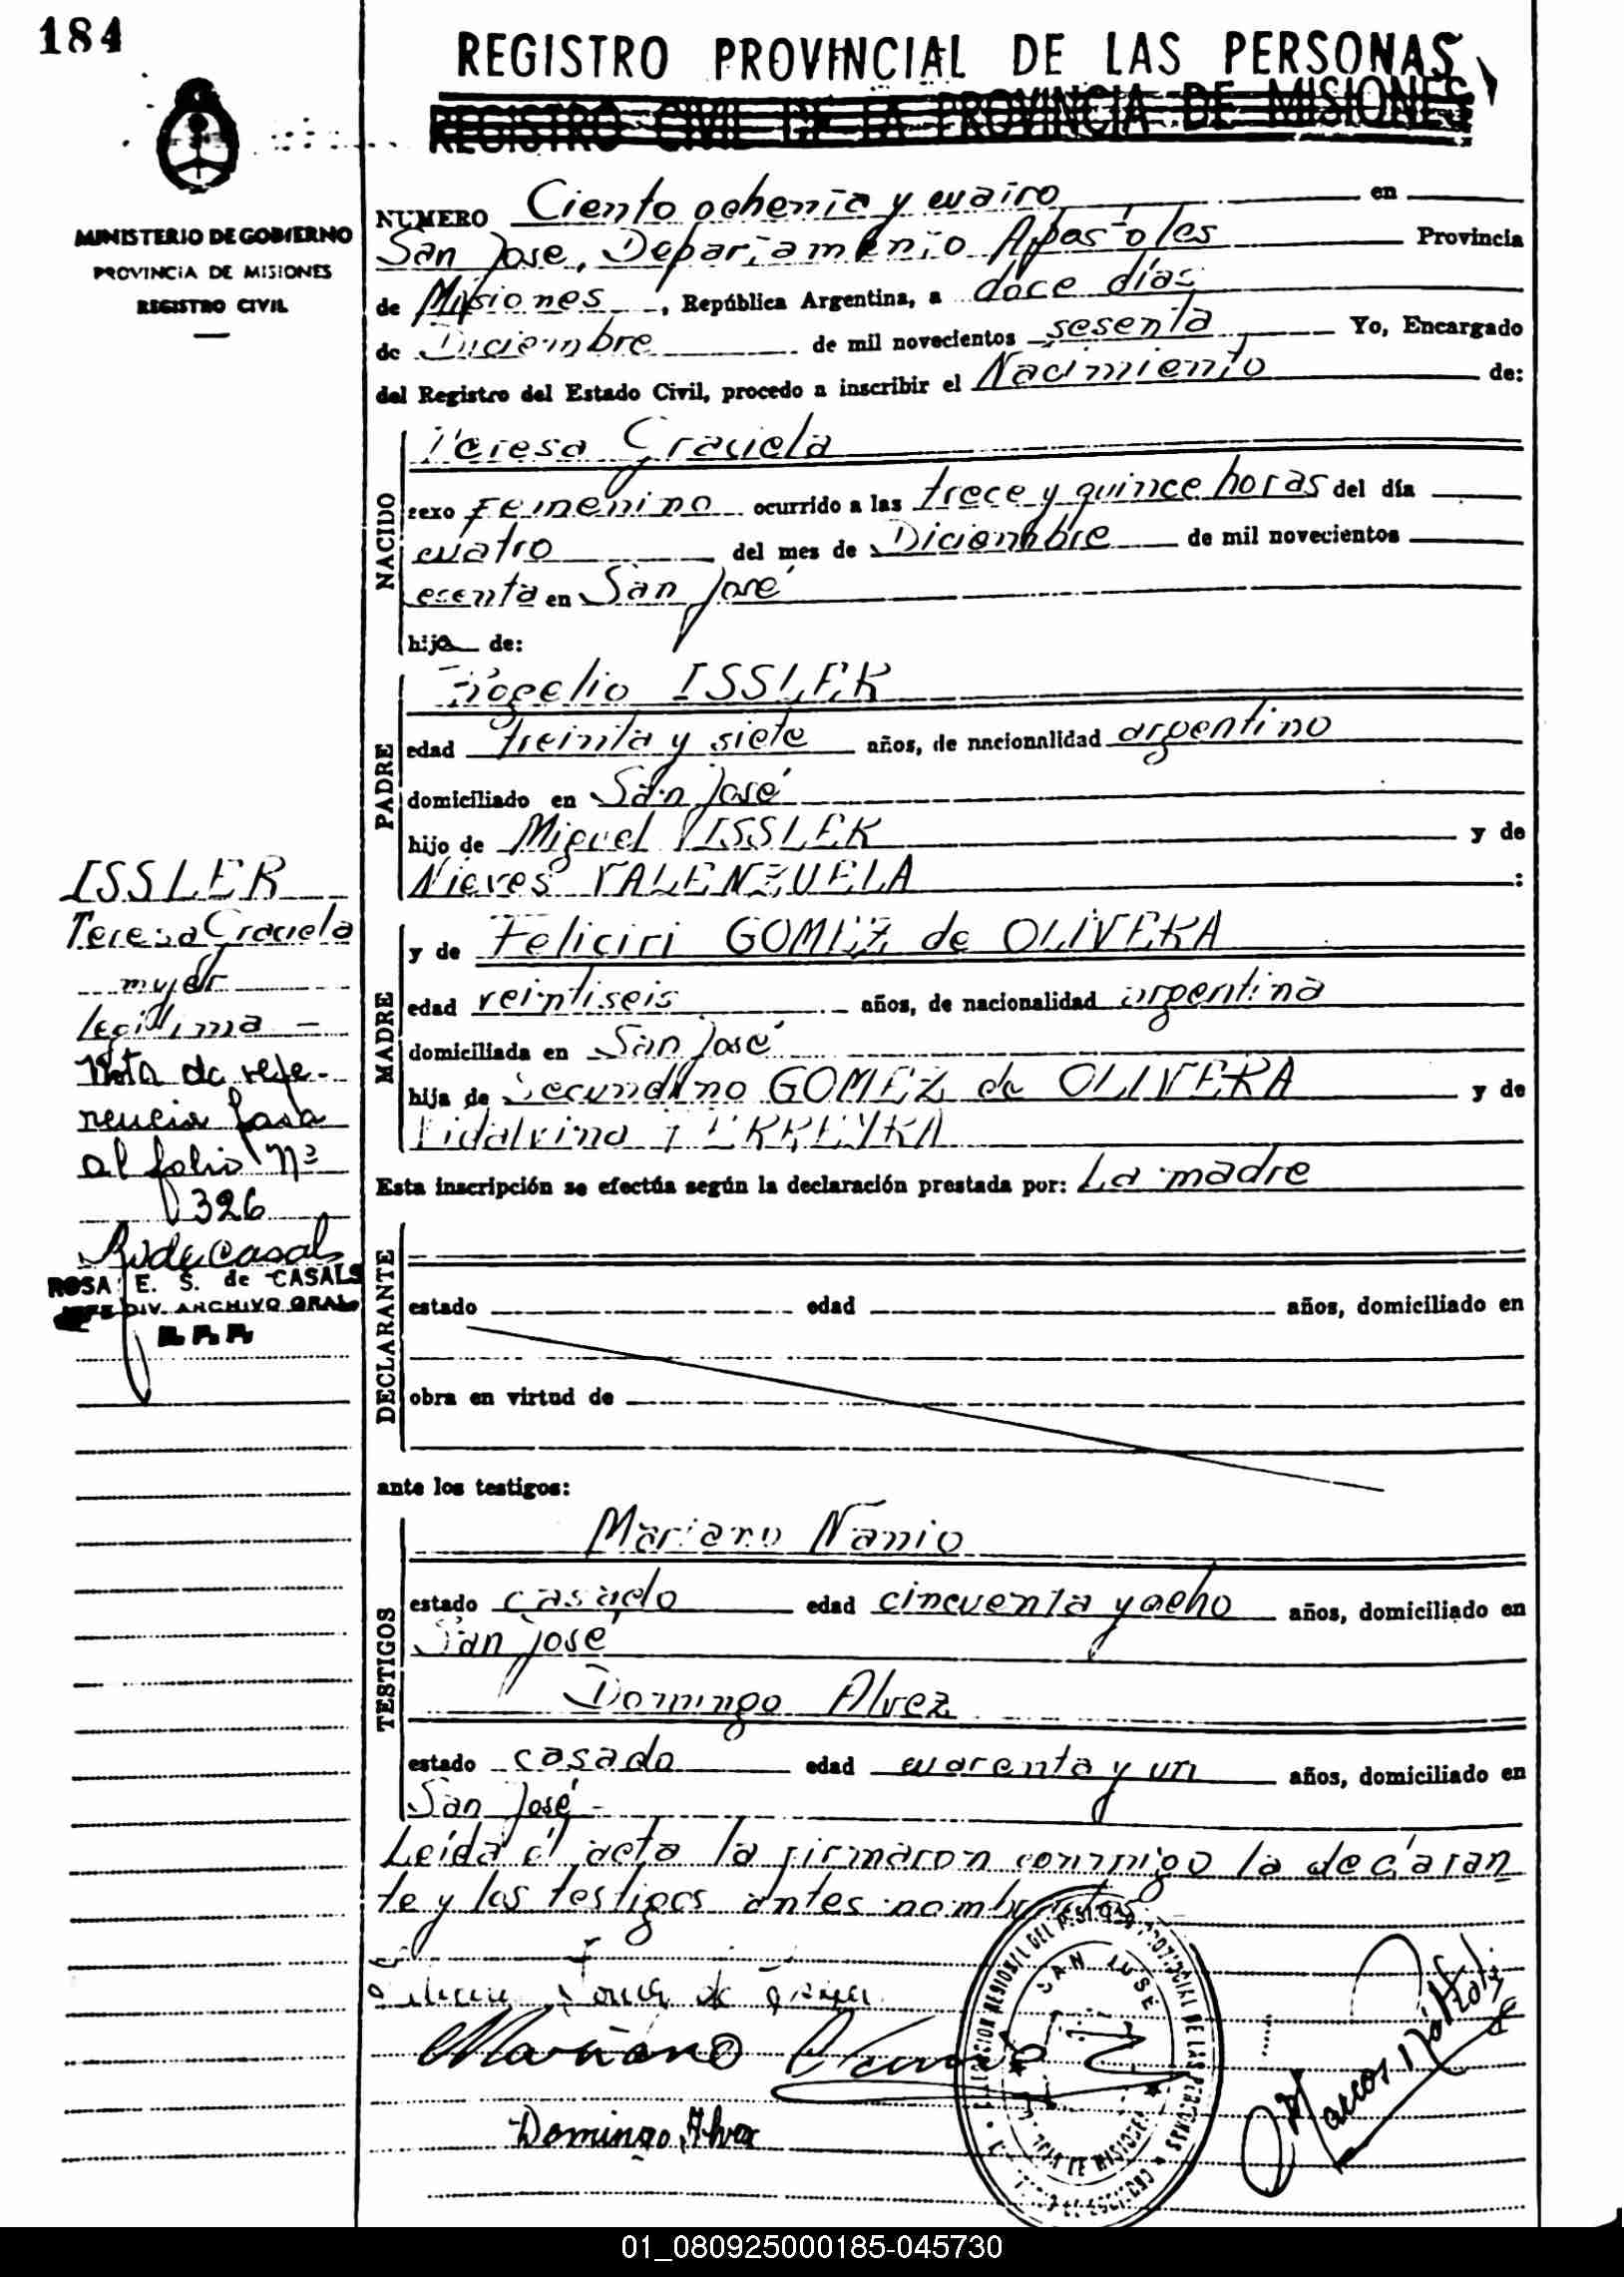 184
REGISTRO PROVINCIAL DE LAS PERSONAS
REGISTRO CIVIL DE LA PROVINCIA DE MISIONES
MINISTERIO DE GOBIERNO
PROVINCIA DE MISIONES
REGISTRO CIVIL
NUMERO Ciento ochenta y cuatro en
San Jose, Departamento Apostoles Provincia
de Misiones, República Argentina, a doce días
de Diciembre de mil novecientos sesenta Yo, Encargado
del Registro del Estado Civil, procedo a inscribir el Nacimiento de:
NACIDO
Teresa Graciela
sexo Femenino ocurrido a las trece y quince horas del día
cuatro del mes de Diciembre de mil novecientos
esenta en San José
hija de:
PADRE
Rogelio ISSLER
edad treinta y siete años, de nacionalidad argentino
domiciliado en San José
hijo de Miguel ISSLER y de
Nieves VALENZUELA :
MADRE
y de GOMEZ de OLIVERA
edad veintiseis años, de nacionalidad argentina
domiciliada en San José
hija de Secundino GOMEZ de OLIVERA y de
Vidalvina FERREYRA
Esta inscripción se efectúa según la declaración prestada por: La madre
DECLARANTE
estado edad años, domiciliado en
obra en virtud de
ante los testigos:
TESTIGOS
Mariano Nanio
estado casado edad cincuenta y ocho años, domiciliado en
San José
Domingo Alvez
estado casado edad cuarenta y un años, domiciliado en
San José -
Leída el acta la firmaron conmigo la declaran
te y los testigos antes nombrados
Mariano
Domingo Alvez
SAN JOSE
Marcos
ISSLER
Teresa Graciela
mujer
legitima -
Nota de refe-
rencia pasa
al folio nº
326
R de Casals
ROSA E. S. de CASALS
JEFE DIV. ARCHIVO GRAL.
01_080925000185-045730